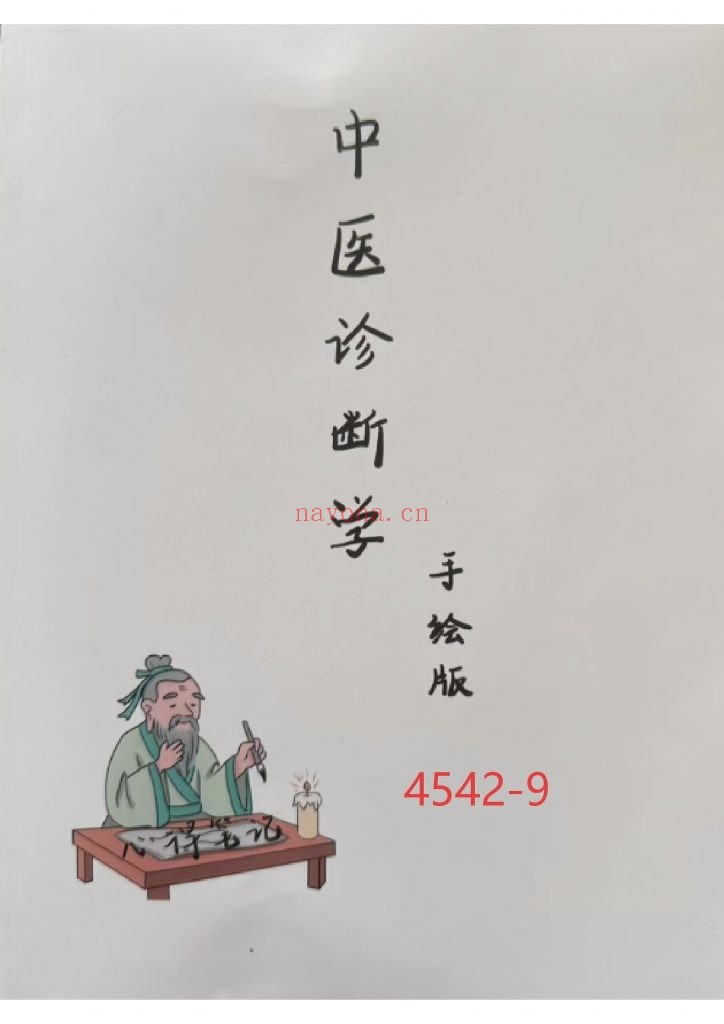 中医诊断学
nayona.cn
手绘版
4542-9
心得笔记